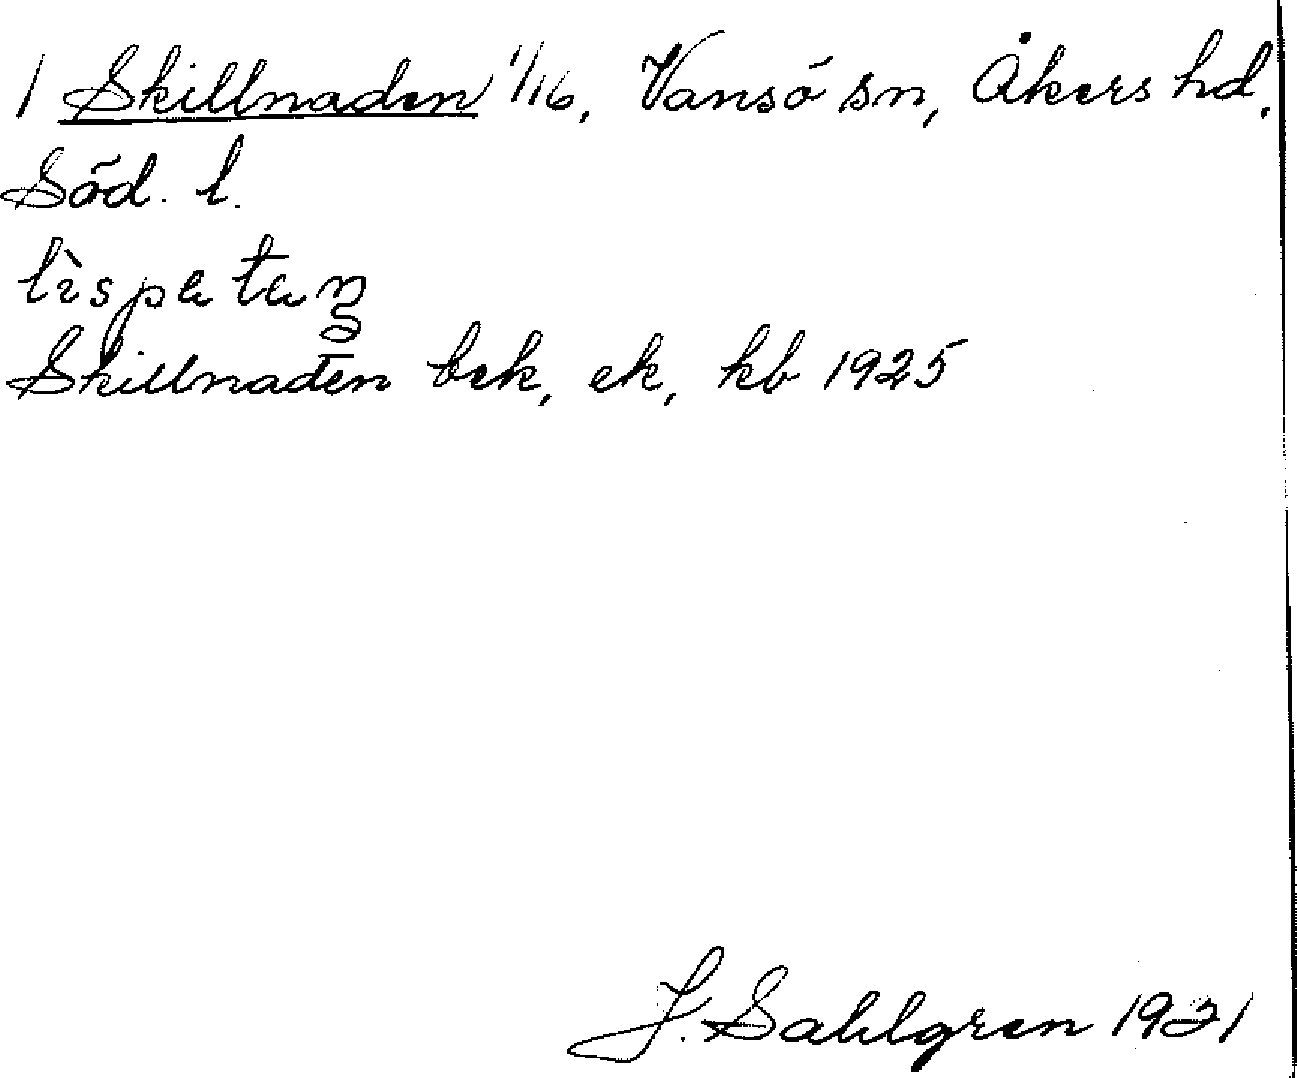 1 Skillnaden 1/16, Vansö sn, Åkers hd,
Söd. l.
Skillnaden bek, ek, kb 1925
J. Sahlgren 1931